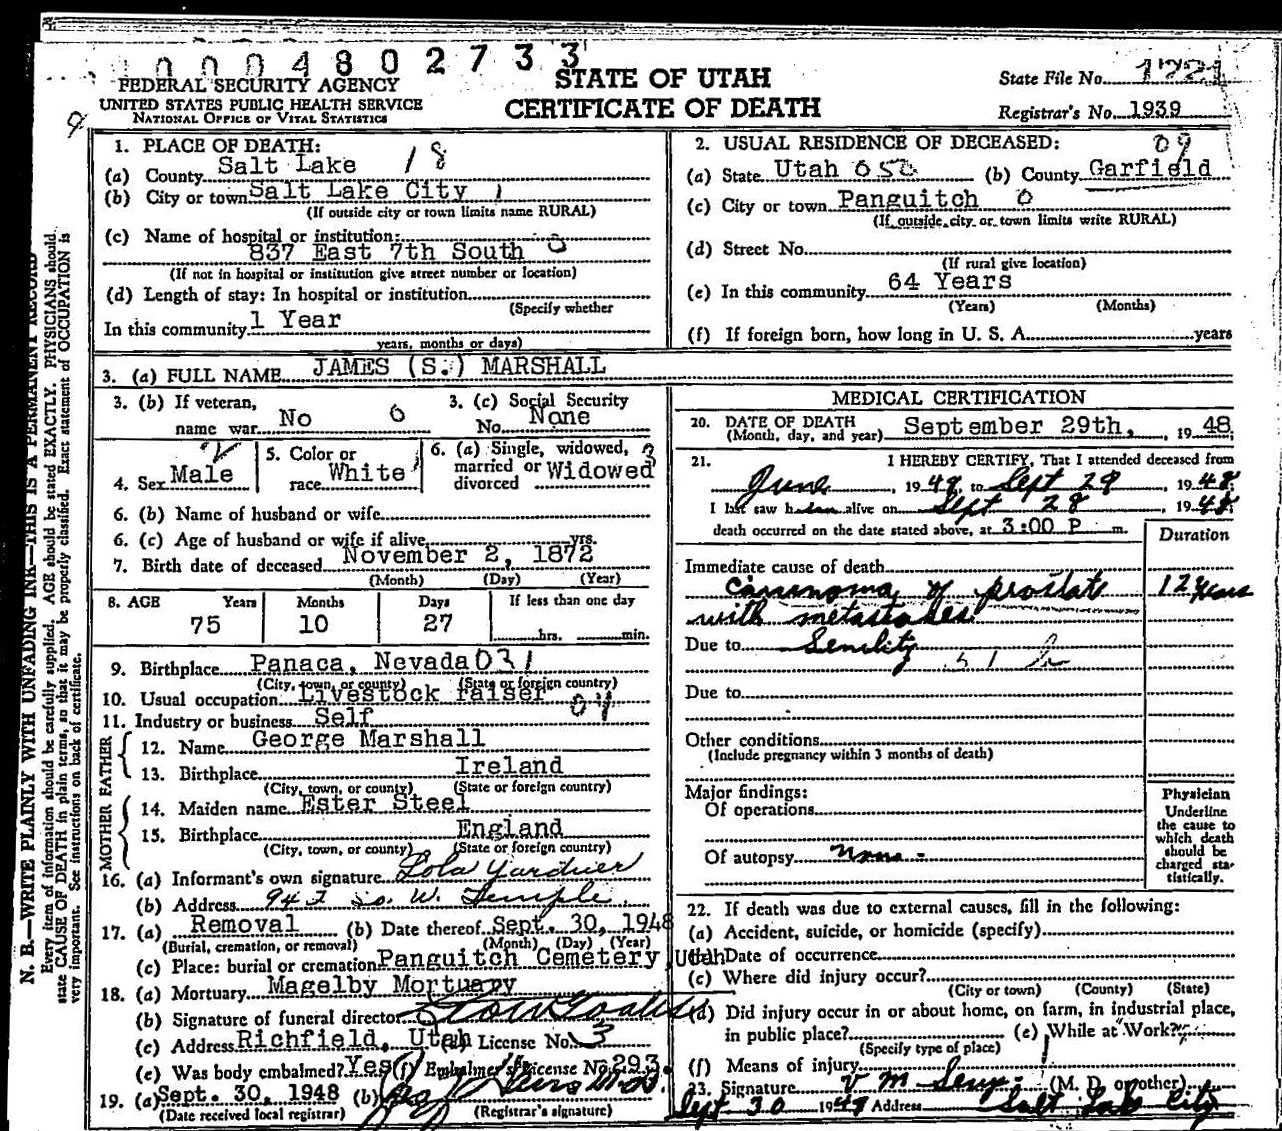 0004802733
FEDERAL SECURITY AGENCY
UNITED STATES PUBLIC HEALTH SERVICE
NATIONAL OFFICE OF VITAL STATISTICS
STATE OF UTAH
CERTIFICATE OF DEATH
State File No. 1721
Registrar's No. 1939
N. B.—WRITE PLAINLY WITH UNFADING INK—THIS IS A PERMANENT RECORD
Every item of information should be carefully supplied. AGE should be stated EXACTLY. PHYSICIANS should
state CAUSE OF DEATH in plain terms, so that it may be properly classified. Exact statement of OCCUPATION is
very important. See instructions on back of certificate.
1. PLACE OF DEATH:
(a) County Salt Lake 18
(b) City or town Salt Lake City 1
(If outside city or town limits name RURAL)
(c) Name of hospital or institution:
837 East 7th South 0
(If not in hospital or institution give street number or location)
(d) Length of stay: In hospital or institution
(Specify whether
In this community 1 Year
years, months or days)
2. USUAL RESIDENCE OF DECEASED: 09
(a) State Utah 050 (b) County Garfield
(c) City or town Panguitch 0
(If outside city or town limits write RURAL)
(d) Street No.
(If rural give location)
(e) In this community 64 Years
(Years) (Months)
(f) If foreign born, how long in U. S. A. years
3. (a) FULL NAME JAMES (S.) MARSHALL
3. (b) If veteran,
name war No 0
3. (c) Social Security
No. None
4. Sex Male
5. Color or
race White
6. (a) Single, widowed,
married or
divorced Widowed 3
6. (b) Name of husband or wife
6. (c) Age of husband or wife if alive yrs.
7. Birth date of deceased November 2, 1872
(Month) (Day) (Year)
8. AGE Years Months Days If less than one day
75 10 27 hrs. min.
9. Birthplace Panaca, Nevada 031
(City, town, or county) (State or foreign country)
10. Usual occupation Livestock raiser
11. Industry or business Self
FATHER
12. Name George Marshall
13. Birthplace Ireland
(City, town, or county) (State or foreign country)
MOTHER
14. Maiden name Ester Steel
15. Birthplace England
(City, town, or county) (State or foreign country)
16. (a) Informant's own signature Lola Yardner
(b) Address So. W. Temple
17. (a) Removal (b) Date thereof Sept. 30, 1948
(Burial, cremation, or removal) (Month) (Day) (Year)
(c) Place: burial or cremation Panguitch Cemetery, Utah
18. (a) Mortuary Magelby Mortuary
(b) Signature of funeral director
(c) Address Richfield, Utah (d) License No. 3
(e) Was body embalmed? Yes (f) Embalmer's License No. 293.
19. (a) Sept. 30, 1948 (b)
(Date received local registrar) (Registrar's signature)
MEDICAL CERTIFICATION
20. DATE OF DEATH
(Month, day, and year) September 29th, , 19 48
21. I HEREBY CERTIFY, That I attended deceased from
June , 19 48, to Sept 29 , 19 48
I last saw him alive on Sept 28 , 19 48
death occurred on the date stated above, at 3:00 P m.
Duration
Immediate cause of death
Carcinoma of prostate 12 years
with metastases
Due to Senility
Due to
Other conditions
(Include pregnancy within 3 months of death)
Major findings:
Of operations
Of autopsy None -
Physician
Underline
the cause to
which death
should be
charged sta-
tistically.
22. If death was due to external causes, fill in the following:
(a) Accident, suicide, or homicide (specify)
Date of occurrence
(c) Where did injury occur?
(City or town) (County) (State)
(d) Did injury occur in or about home, on farm, in industrial place,
in public place? (e) While at Work?
(Specify type of place)
(f) Means of injury
23. Signature V M (M. D. or other)
Sept 30 1948 Address Salt Lake City